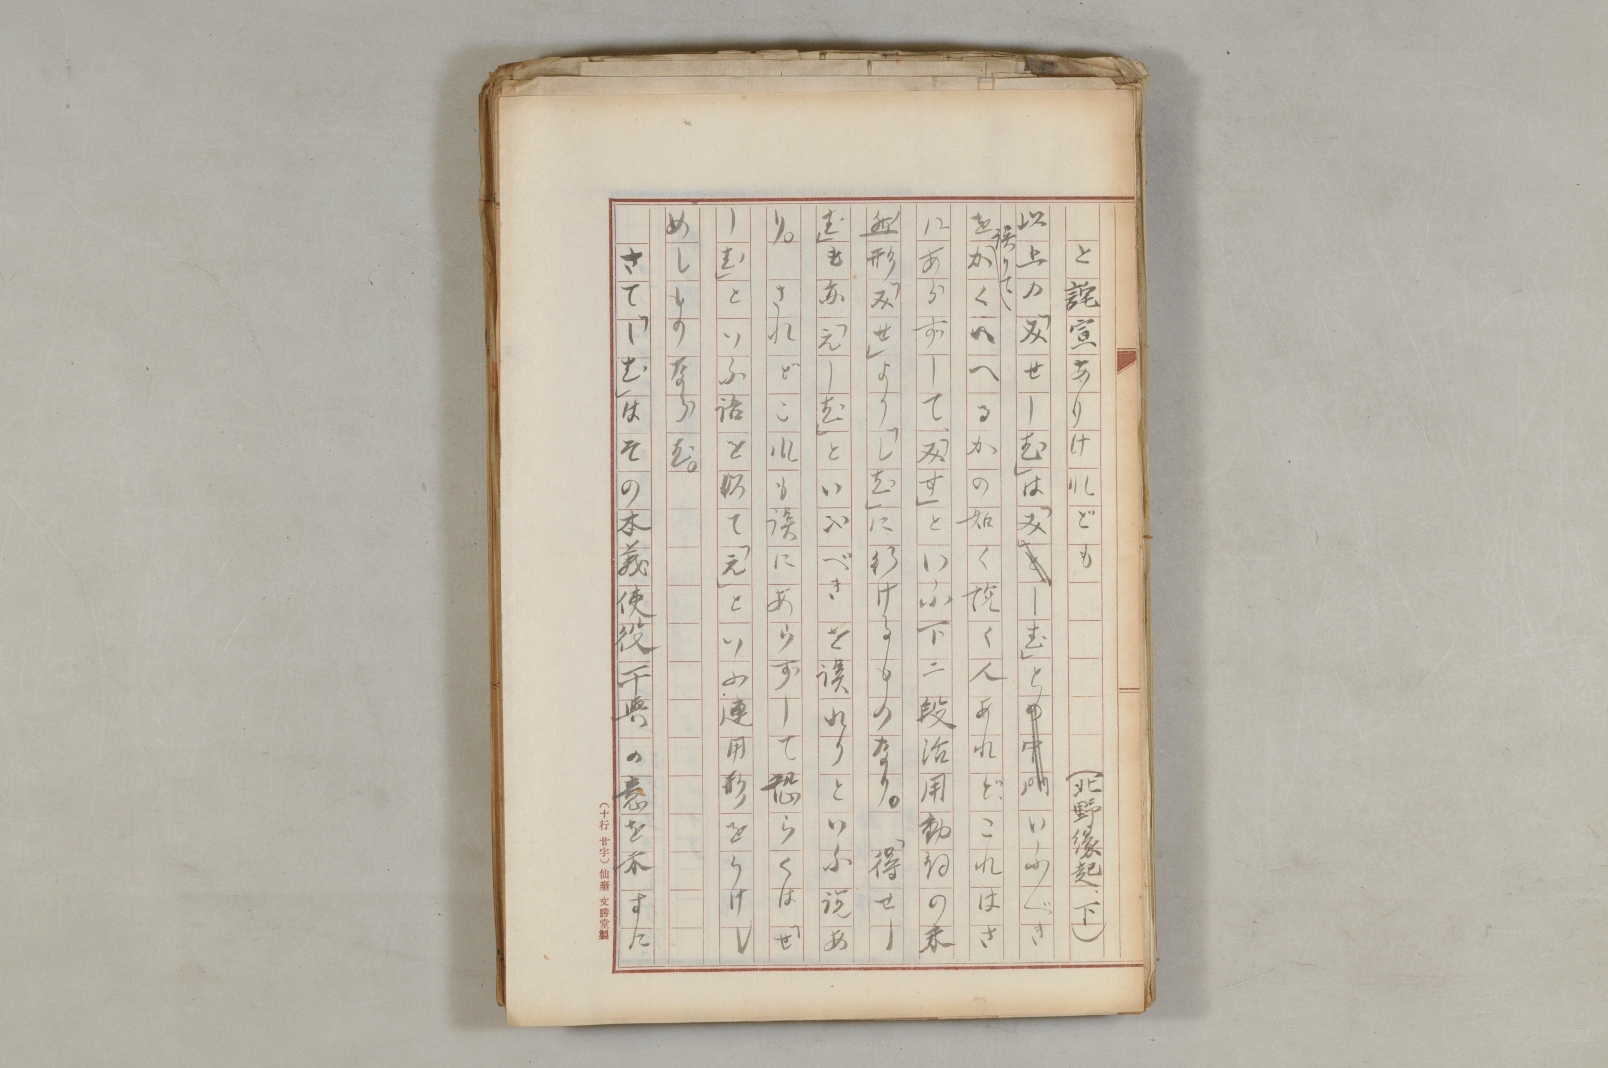 と詫宣ありけれども　（北野縁起、下）
以上の「みせしむ」は「みしむ」といふべき
を誤りてかくいへるかの如く説く人あれど、これはさ
にあらずして、「みす」といふ下二段活用動詞の未
然形「みせ」より「しむ」に続けるものなり。「得せし
む」も亦「えしむ」といふべきを誤れりといふ説あ
り。されどこれも誤にあらずして恐らくは「せ
しむ」といふ語をて「え」といふ連用形をうけし
めしものならむ。
さて「しむ」はその本義使役干與の意を示すに
（十行 廿字）仙臺 文勝堂製